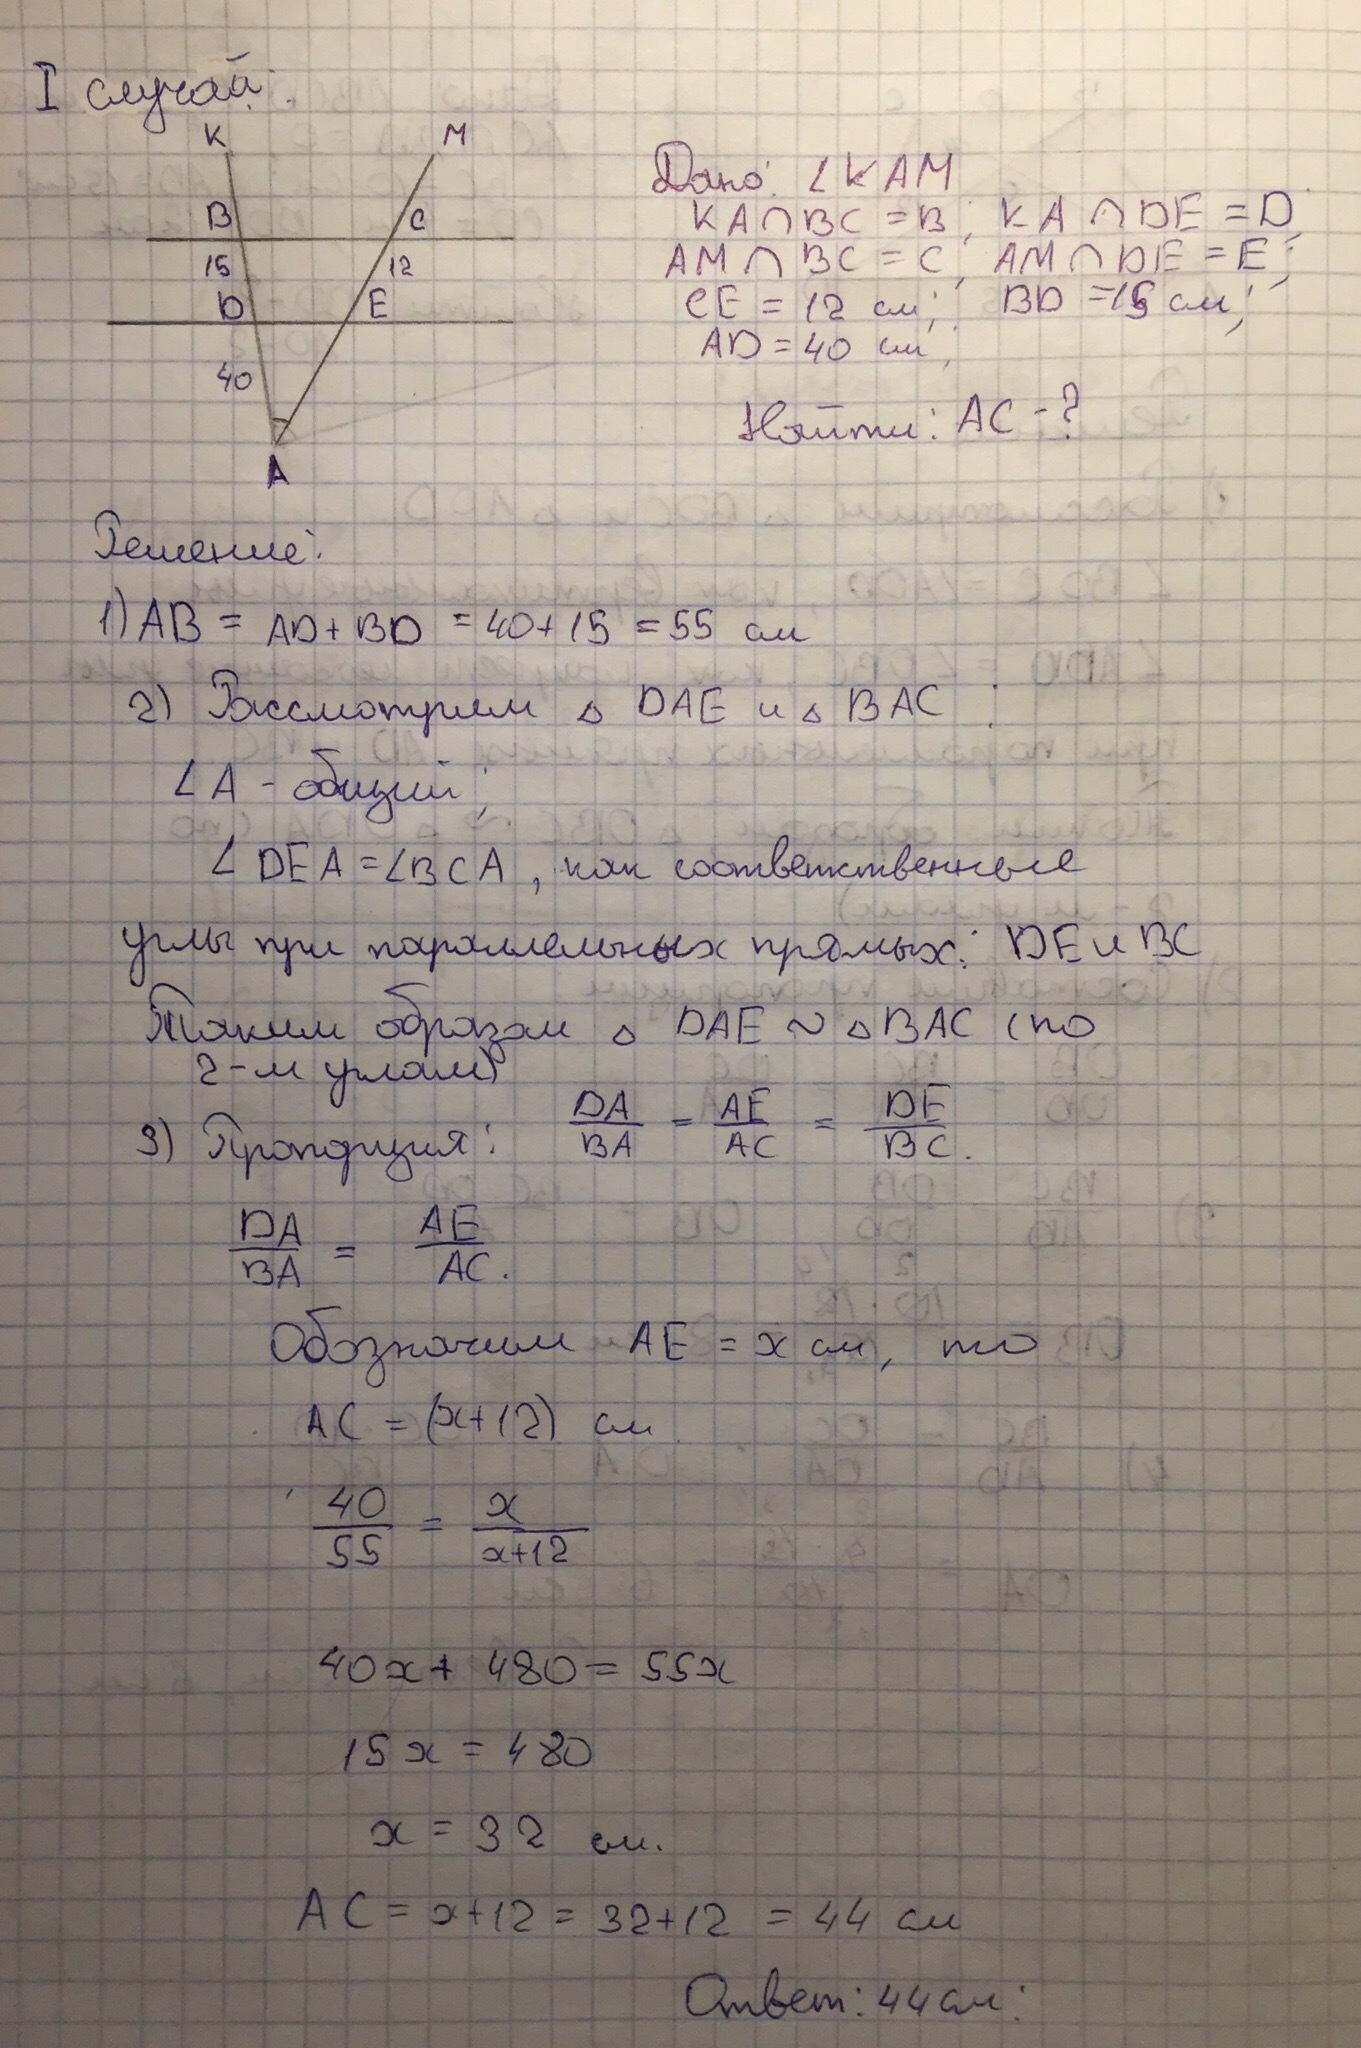 I случай:
К М
В С
15 12
D Е
40
А
Дано: ∠КАМ
КА∩ВС = В; КА∩DE = D;
АМ∩ВС = С; АМ∩DE = Е;
СЕ = 12 см; BD = 15 см;
AD = 40 см;
Найти: АС - ?
Решение:
1) АВ = AD + BD = 40 + 15 = 55 см
2) Рассмотрим △ DAE и △ ВАС :
∠А - общий;
∠ DEA = ∠ВСА, как соответственные
углы при параллельных прямых: DE и ВС
Таким образом △ DAE ~ △ ВАС (по
2-м углам)
3) Пропорция: DA/BA = AE/AC = DE/BC.
DA/BA = AE/AC.
Обозначим АЕ = х см, то
АС = (х+12) см
40/55 = х/(х+12)
40х + 480 = 55х
15х = 480
х = 32 см.
АС = х+12 = 32+12 = 44 см
Ответ: 44 см.